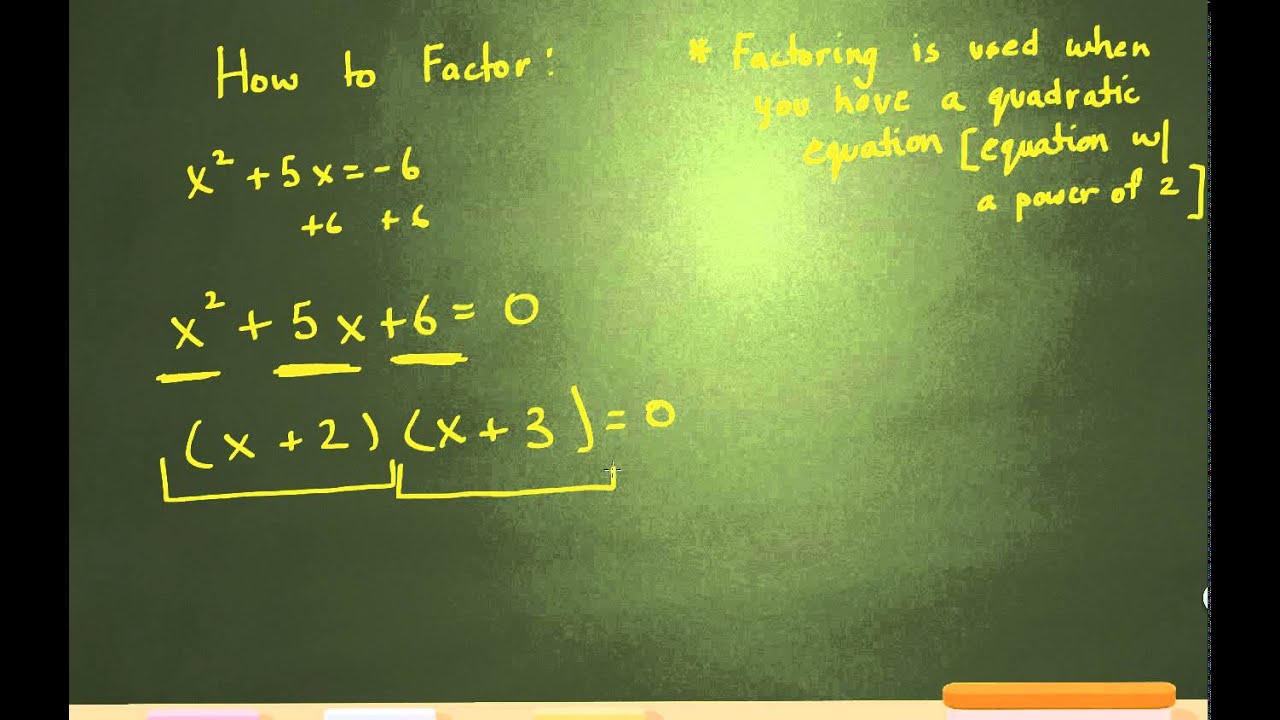 How to Factor:
x² + 5x = -6
+6 +6
x² + 5x + 6 = 0
(x + 2) (x + 3) = 0
* Factoring is used when
you have a quadratic
equation [equation w/
a power of 2]